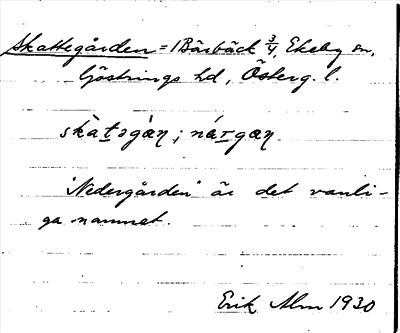 Skattegården = 1 Bärbäck 3/4, Ekeby sn,
Göstrings hd, Österg. l.
skàt̲əgàn ; nárgan.
"Nedergården" är det vanli-
ga namnet.
Erik Alm 1930